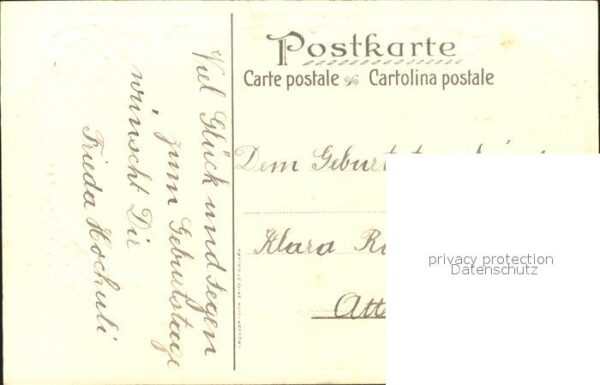 Postkarte
Carte postale Cartolina postale
Viel Glück und Segen
zum Geburtstage
wünscht Dir
Frieda Hochuli
Dem
Klara
privacy protection
Datenschutz